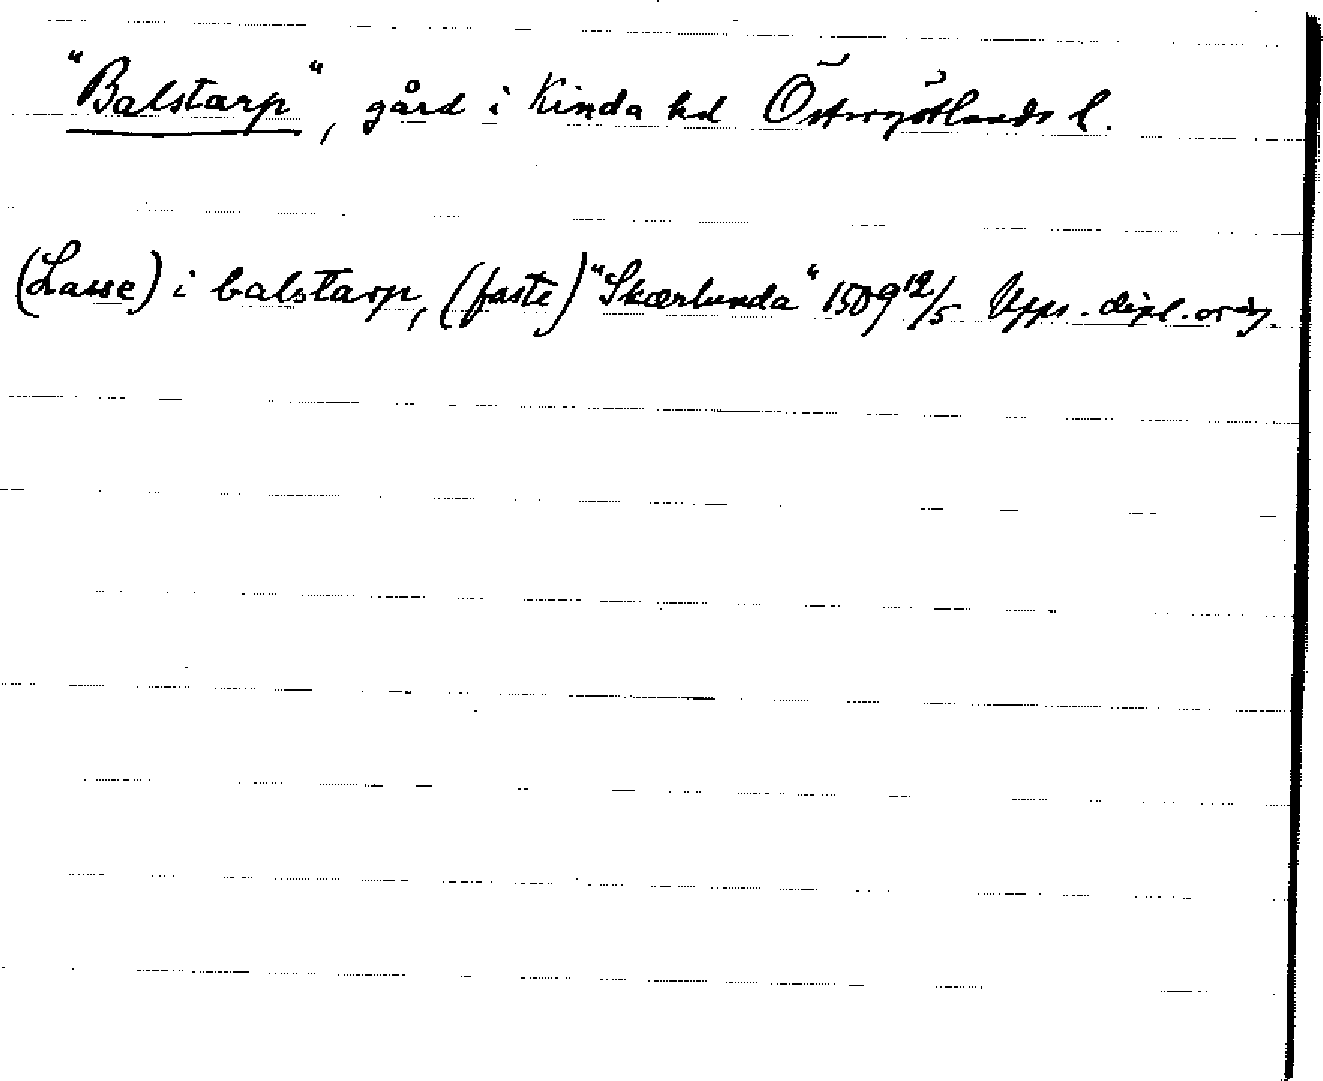 "Balstarp", gård i Kinda hd Östergötlands l.
(Lasse) i balstarp, (faste) "Skærlunda" 1509 12/5 Upps. dipl. orig.